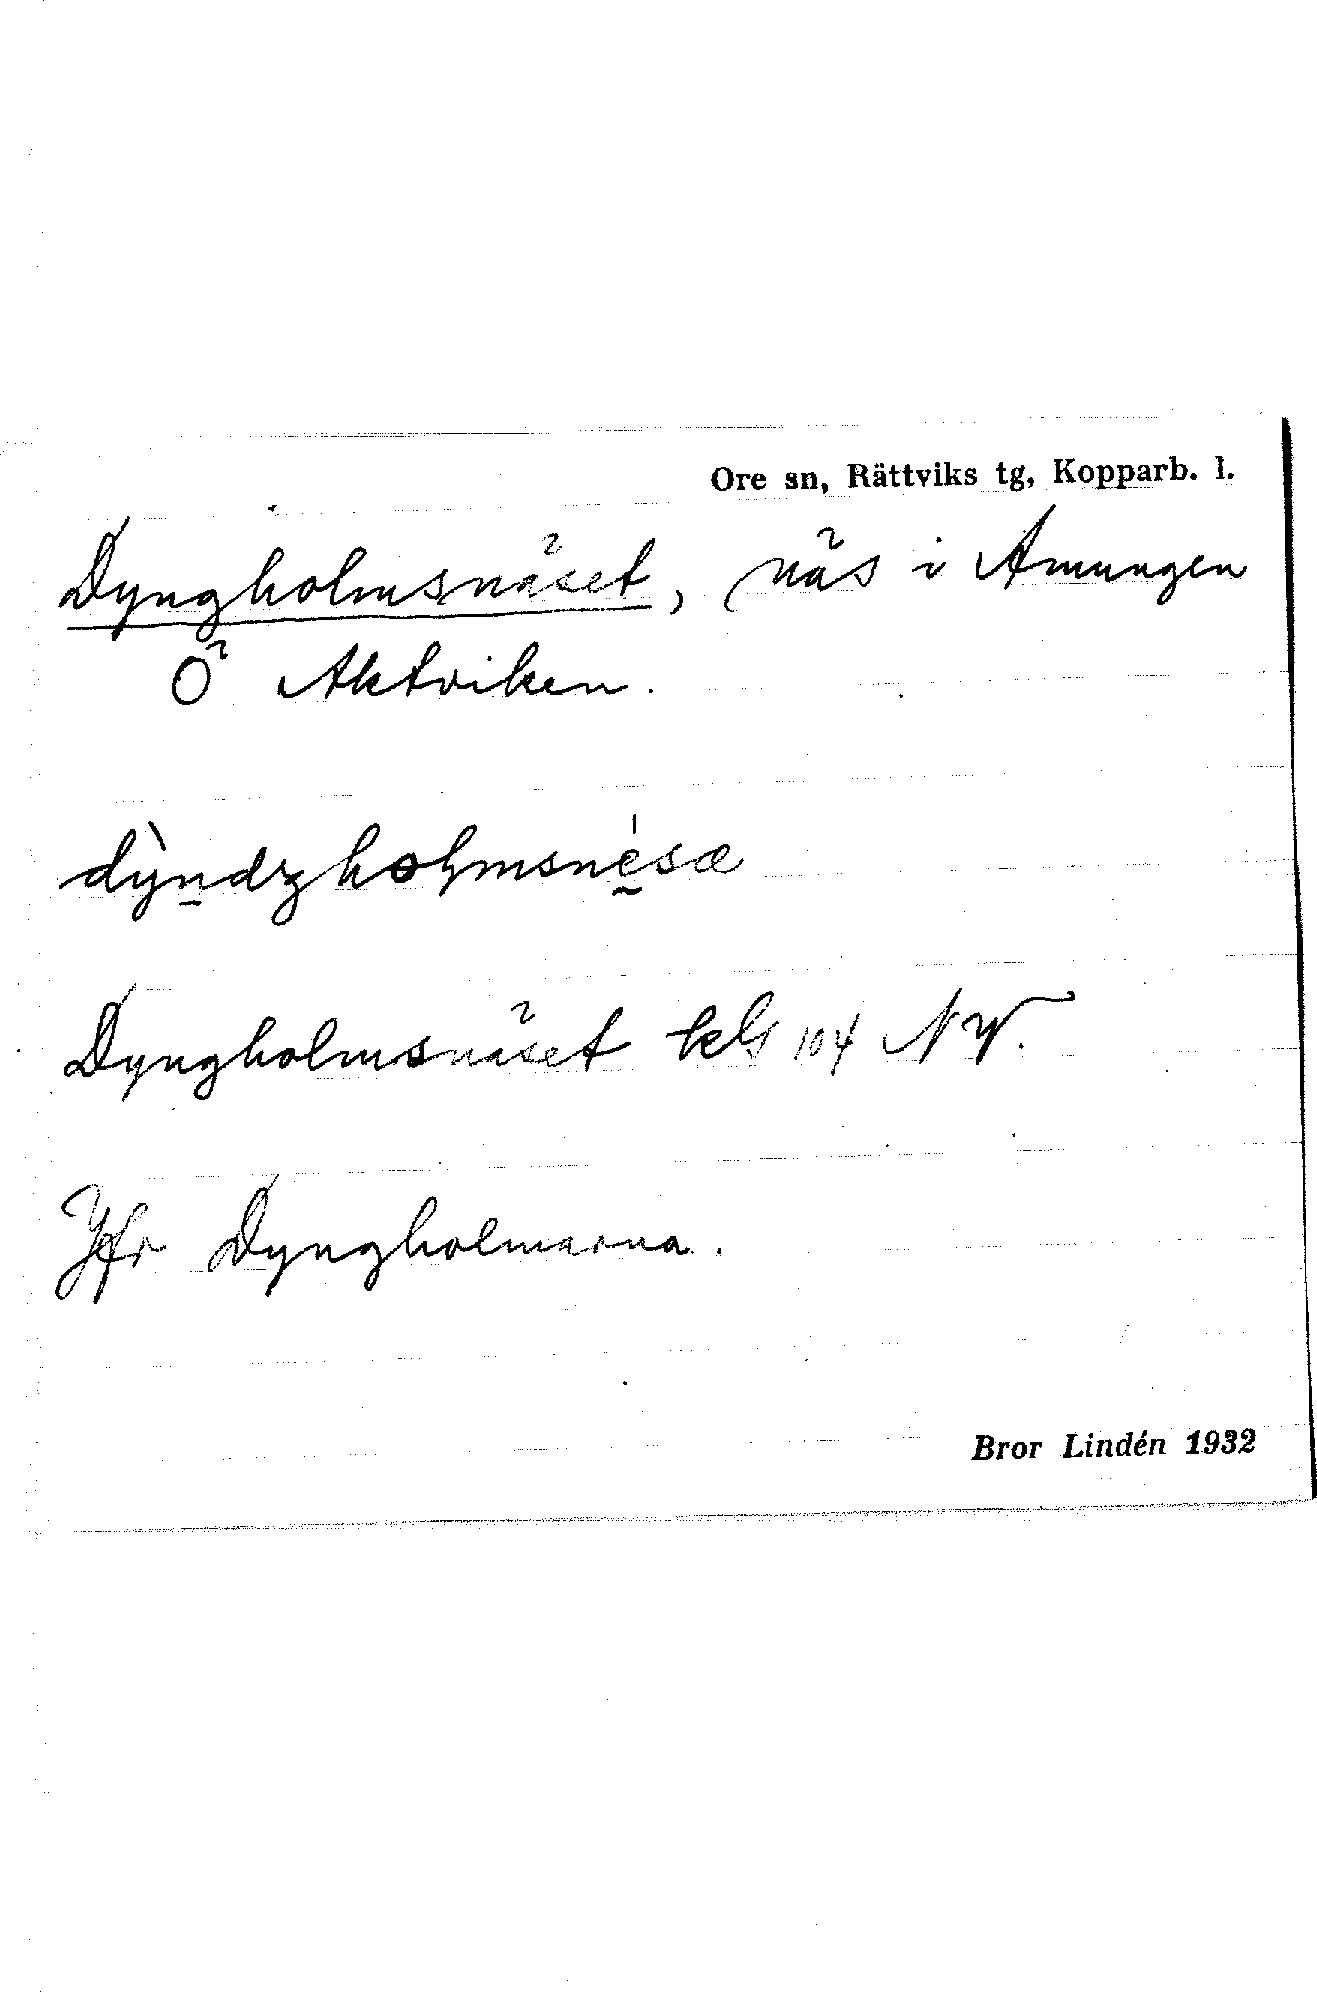 Ore sn, Rättviks tg, Kopparb. l.
Dyngholmsnäset, näs i Amungen
Ö Aktviken.
dỳn̠dzhoɫmsnésæ
Dyngholmsnäset kbl 104 NV.
Jfr Dyngholmarna.
Bror Lindén 1932